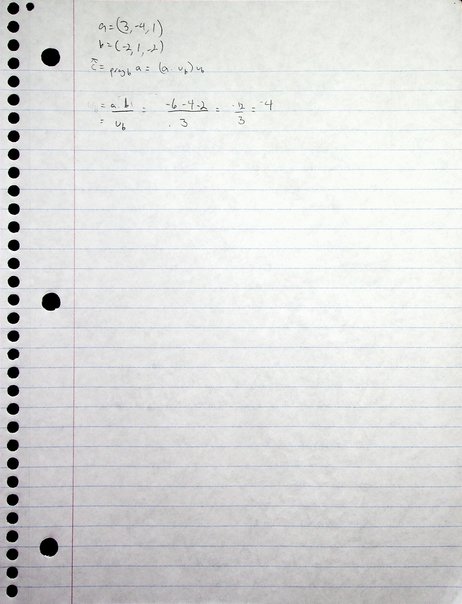 a = (3, -4, 1)
b = (-2, 1, -2)
c = proj_b a = (a · u_b) u_b
= a · b / u_b = -6 - 4 - 2 / 3 = -12 / 3 = -4
=